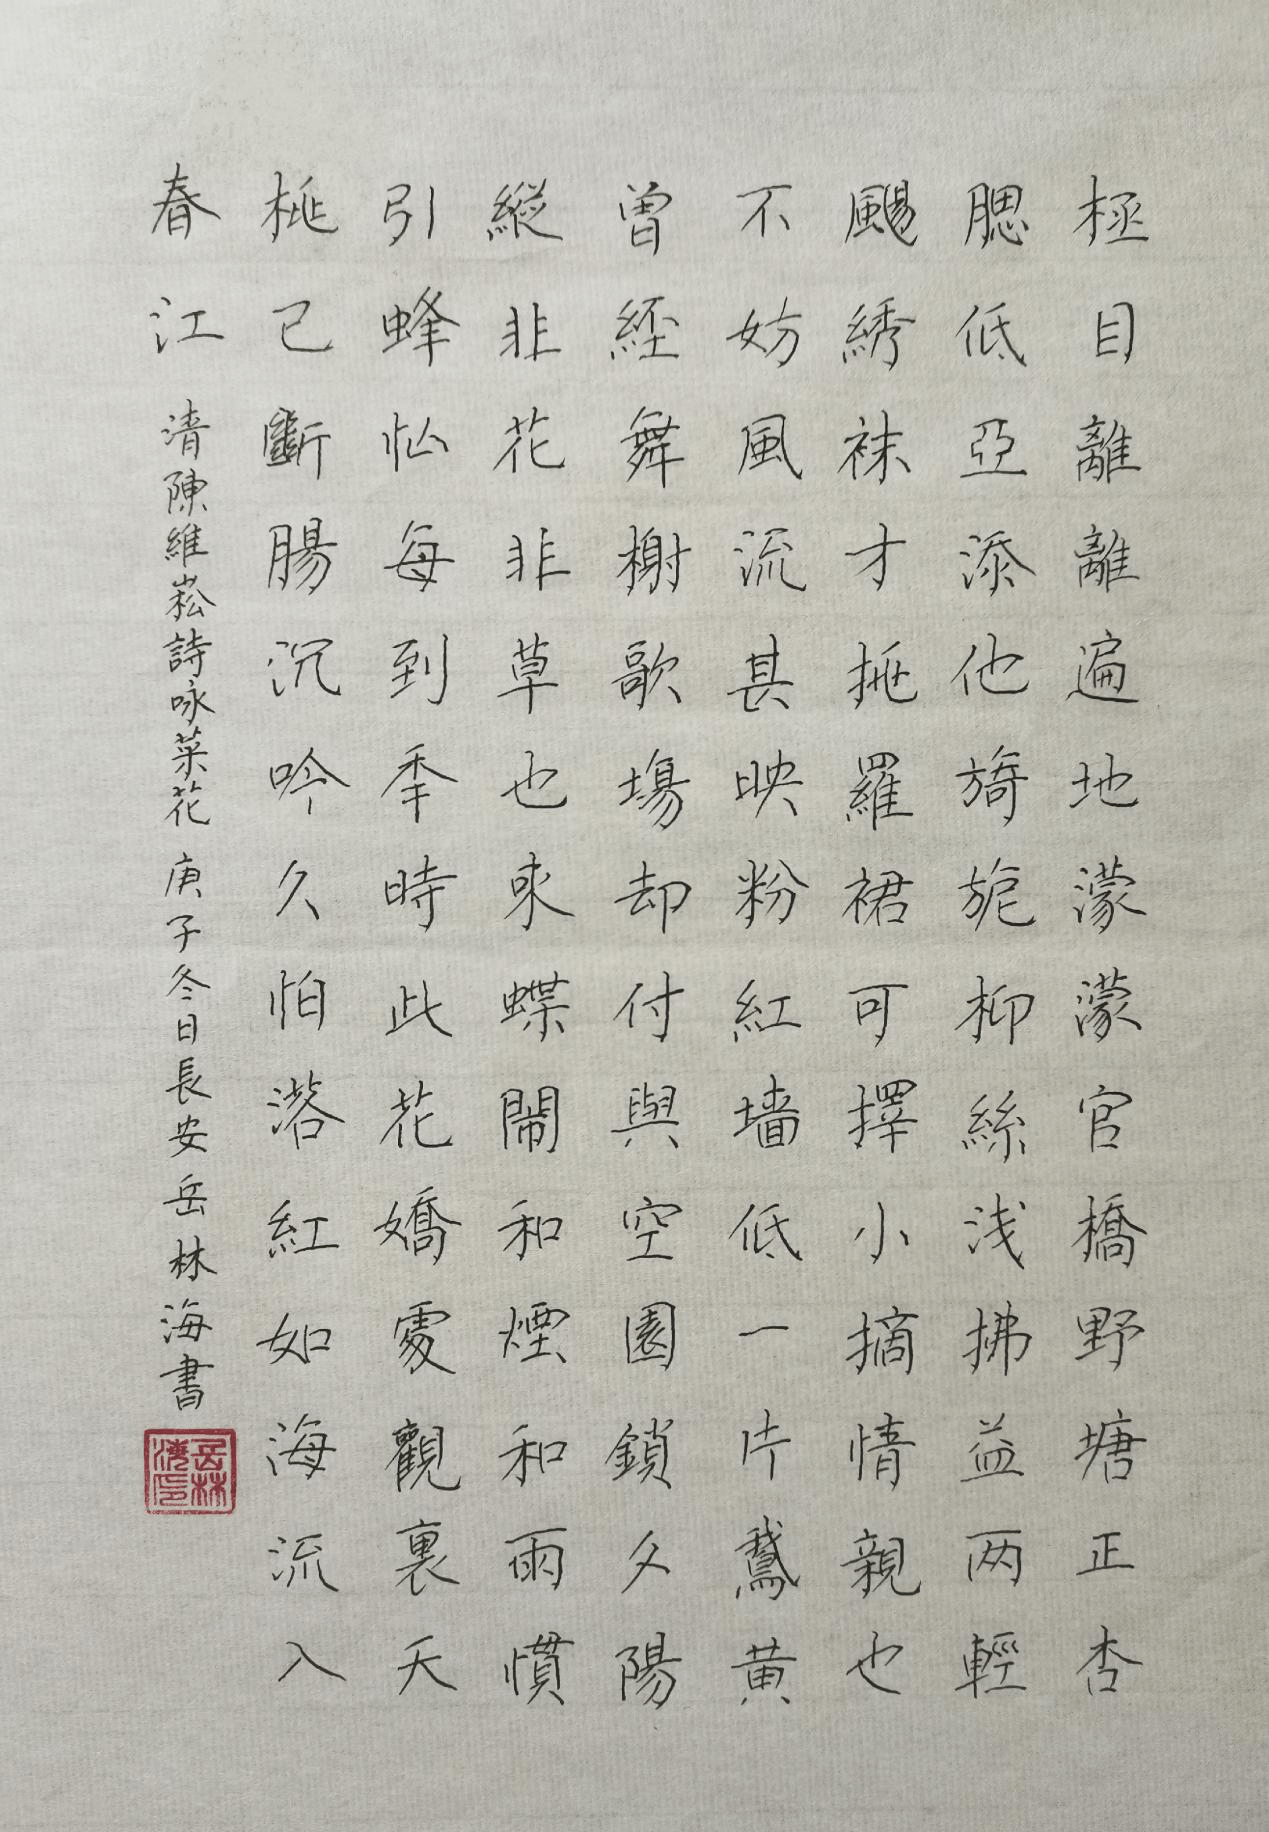 極目離離遍地濛濛官橋野塘正杏
腮低亞添他旖旎柳絲浅拂益两輕
颺綉袜才挑羅裙可擇小摘情親也
不妨風流甚映粉紅墻低一片鵞黄
曾經舞榭歌塲却付與空園鎖夕陽
縱非花非草也來蝶鬧和煙和雨慣
引蜂忙每到年時此花嬌處觀裏夭
桃已斷腸沉吟久怕落紅如海流入
春江
清陳維崧詩咏菜花 庚子冬日長安岳林海書
岳林海印